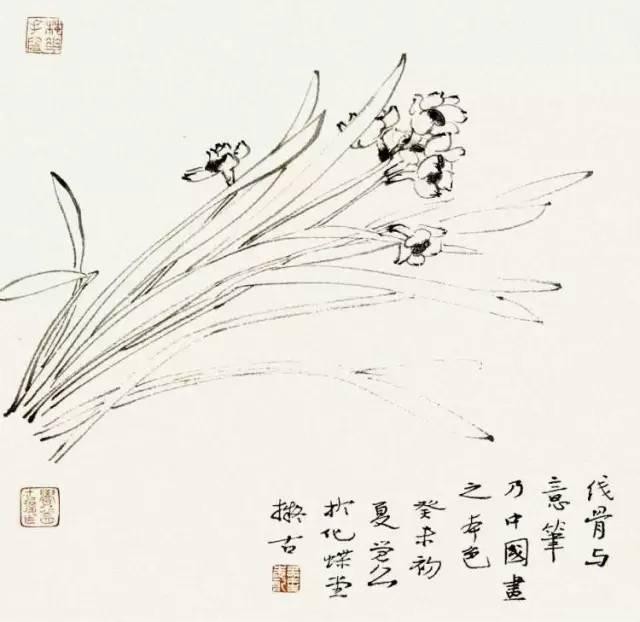 骨与
意筆
乃中國畫
之本色
癸未初
夏
於化蝶堂
擬古